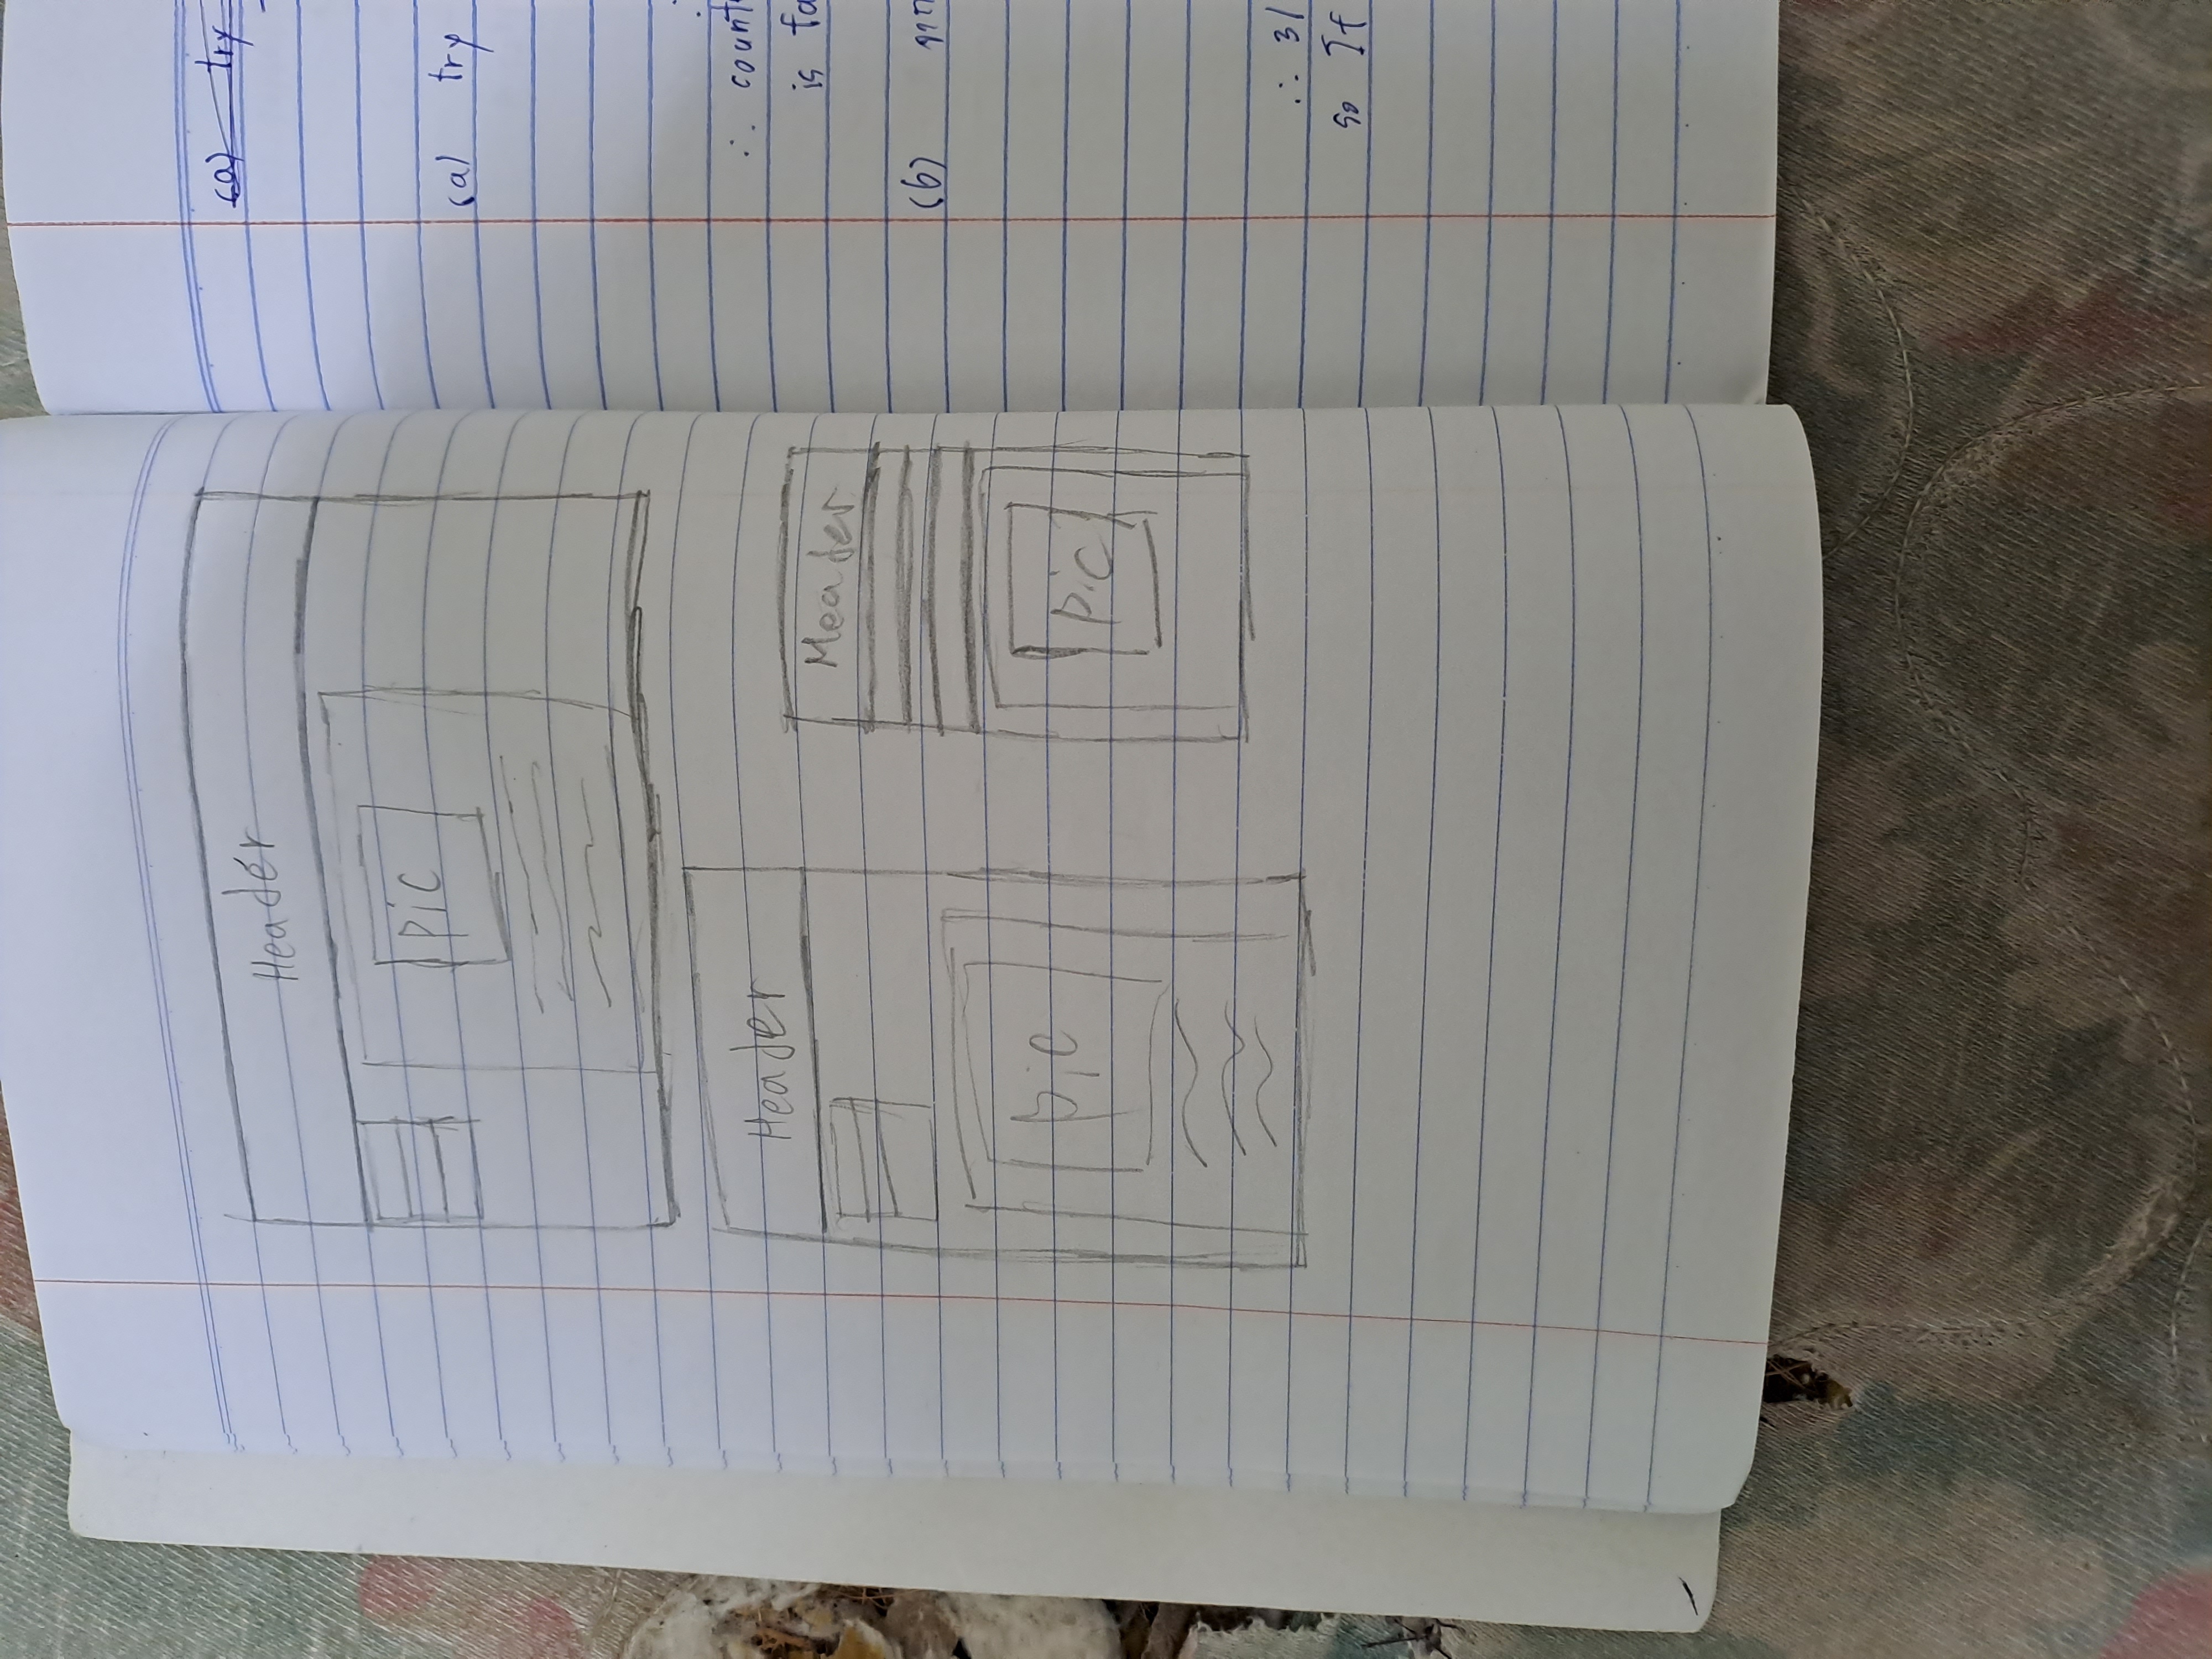 Header
pic
Header
pic
Header
pic
(a) try
(a) try
∴ count
is fa
(b)
∴ 31
so If